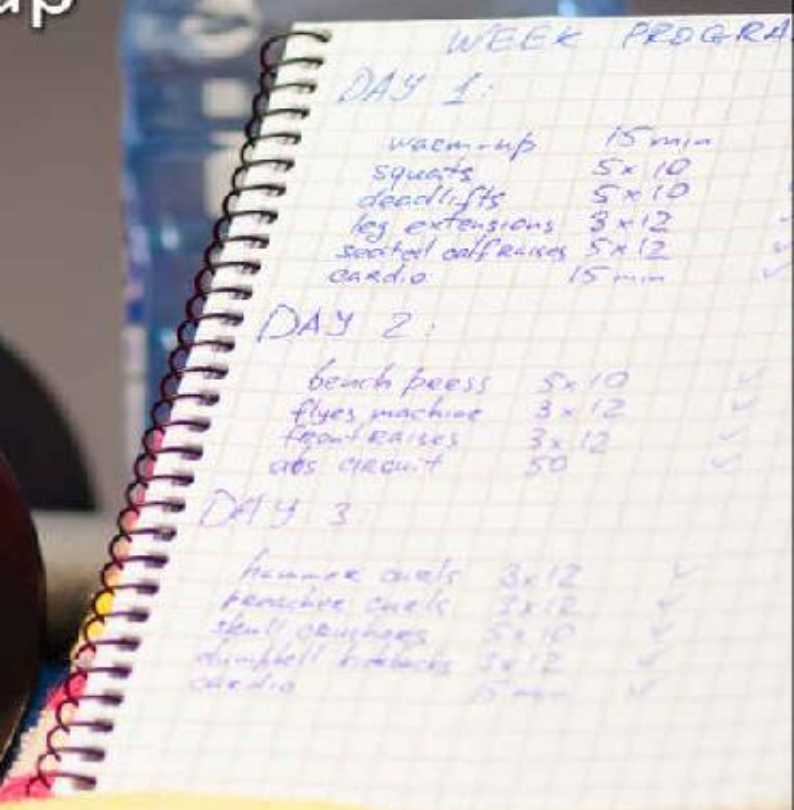 up
WEEK PROGRA
DAY 1:
warm-up 15 min
squats 5x10
deadlifts 5x10
leg extensions 3x12
seated calf raises 5x12
cardio 15 min
DAY 2:
bench press 5x10
flyes machine 3x12
front raises 3x12
abs circuit 50
DAY 3:
hammer curls 3x12
preacher curls 3x12
skull crushers 5x10
dumpbell kickbacks 3x12
cardio 15 min